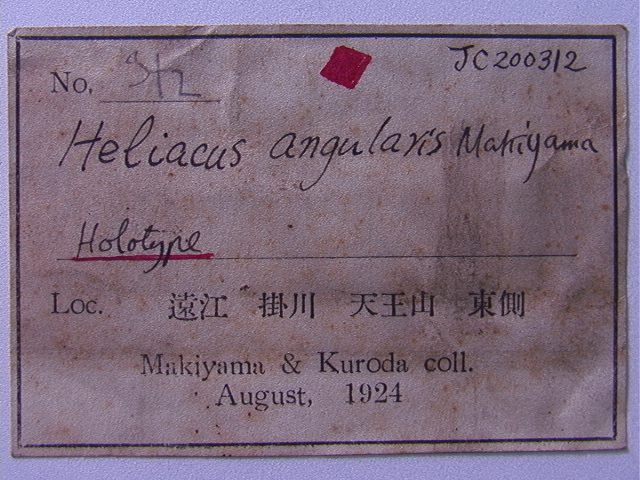 No. 312
JC200312
Heliacus angularis Makiyama
Holotype
Loc. 遠江 掛川 天王山 東側
Makiyama & Kuroda coll.
August, 1924